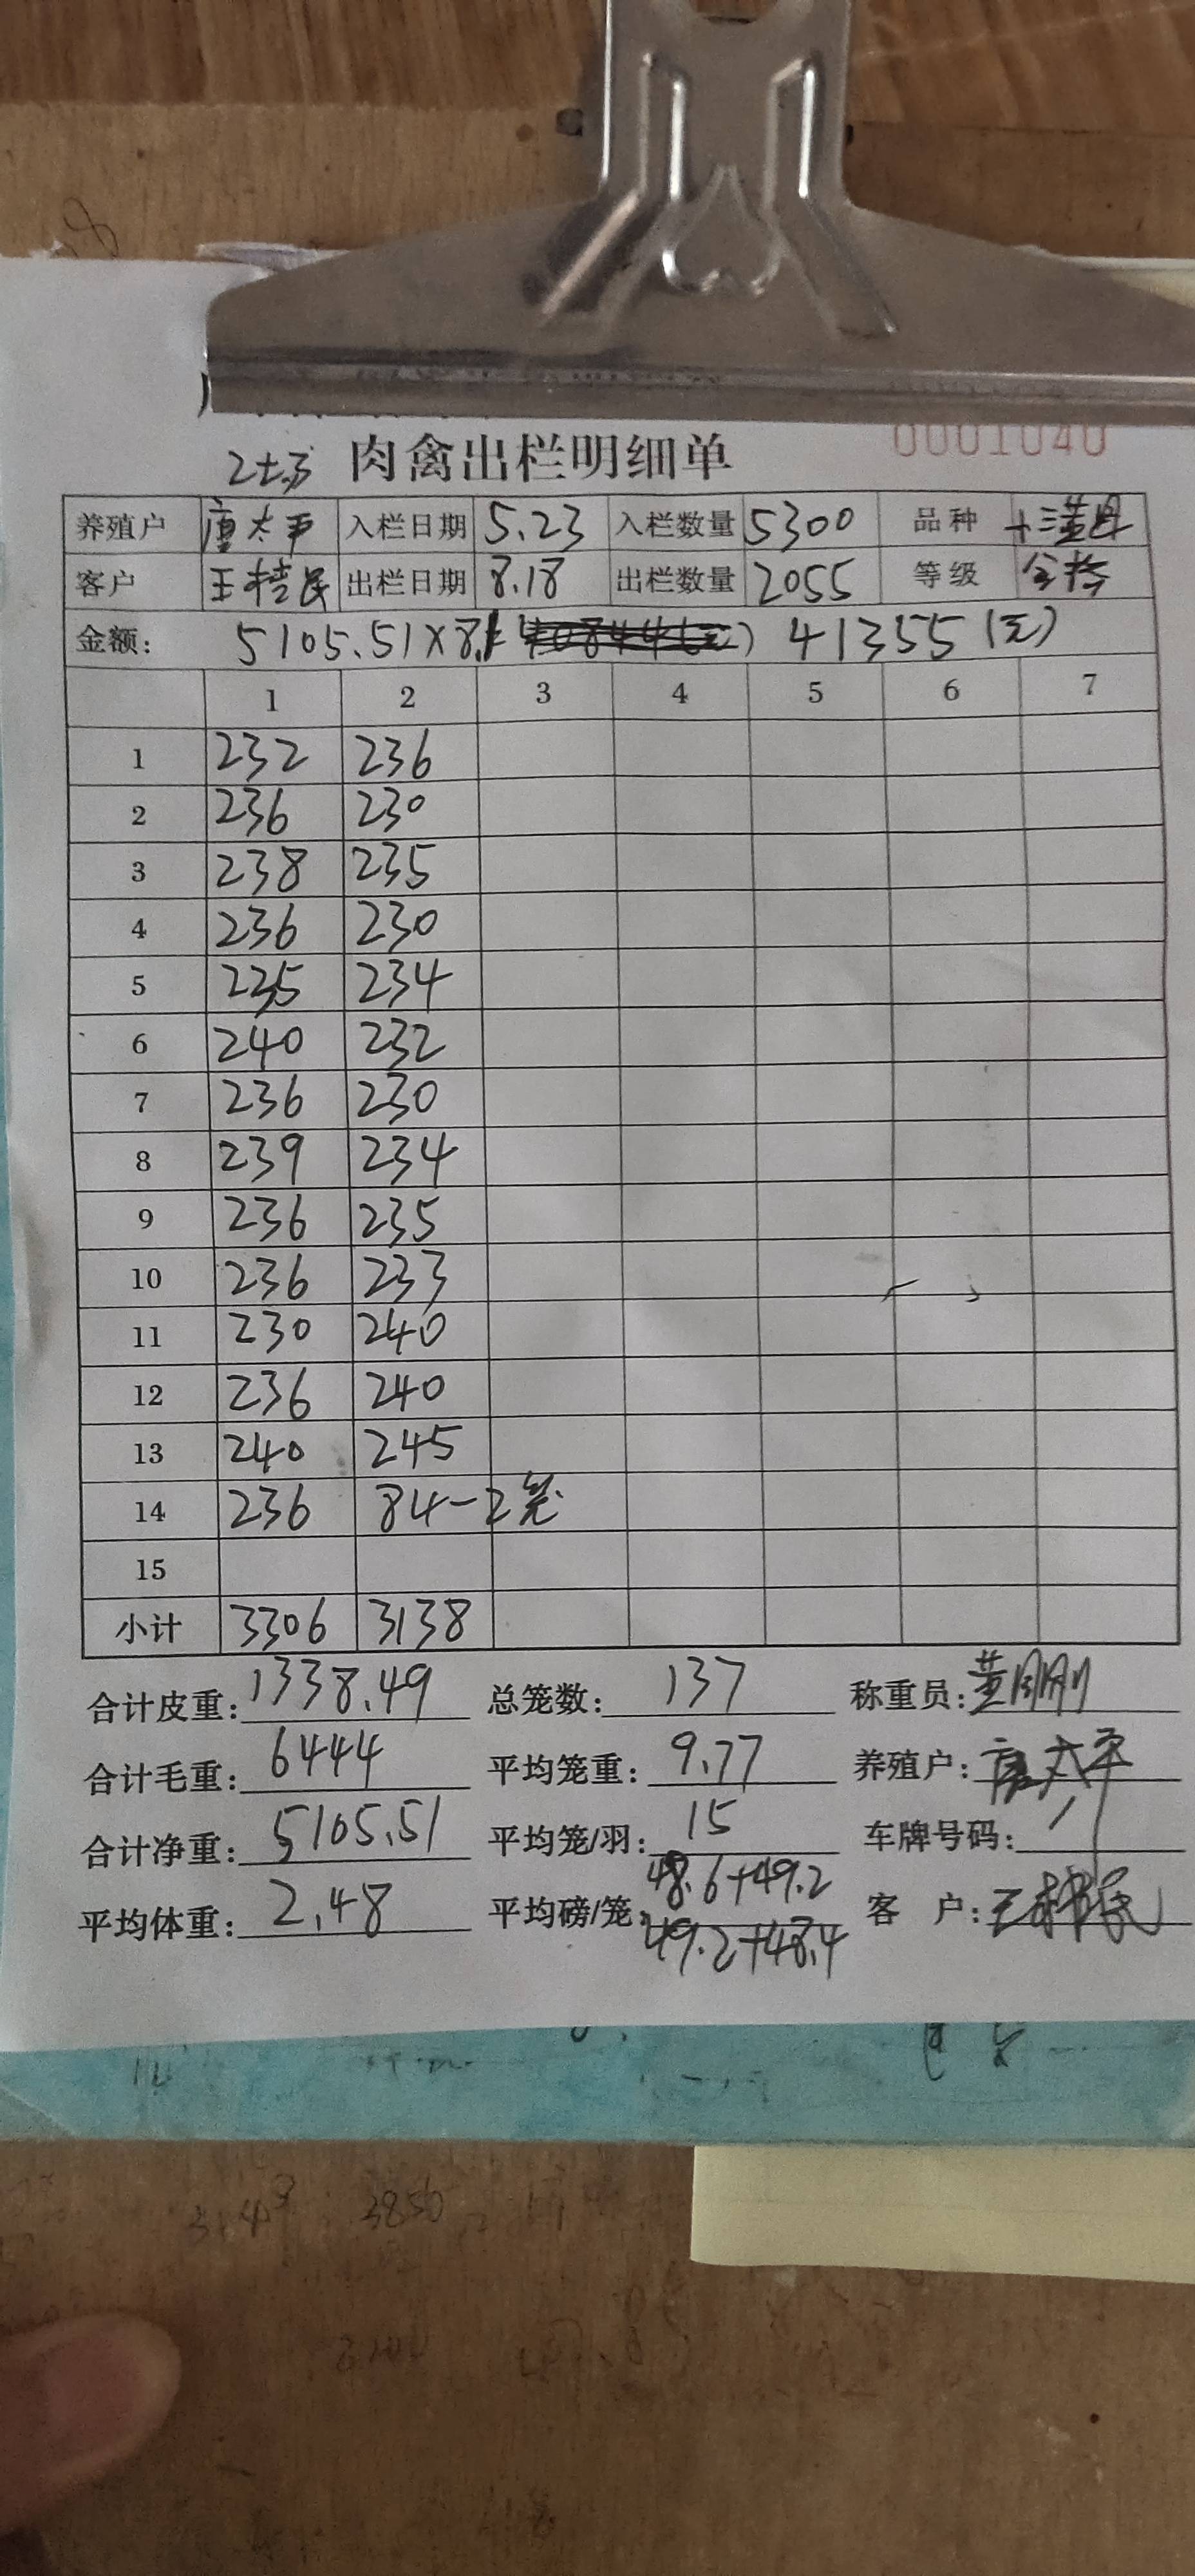 0001040
肉禽出栏明细单
养殖户 唐太平 入栏日期 5.23 入栏数量 5300 品种
客户 王桂民 出栏日期 8.18 出栏数量 2055 等级 合格
金额: 5105.51×8.1 41355(元)
1 2 3 4 5 6 7
1 232 236
2 236 230
3 238 235
4 236 230
5 235 234
6 240 232
7 236 230
8 239 234
9 236 235
10 236 233
11 230 240
12 236 240
13 240 245
14 236 84-2笼
15
小计 3306 3138
合计皮重: 1338.49 总笼数: 137 称重员: 黄刚刚
合计毛重: 6444 平均笼重: 9.77 养殖户: 唐太平
合计净重: 5105.51 平均笼/羽: 15 车牌号码:
平均体重: 2.48 平均磅/笼: 48.6+49.2 客户:
49.2+48.4
3850